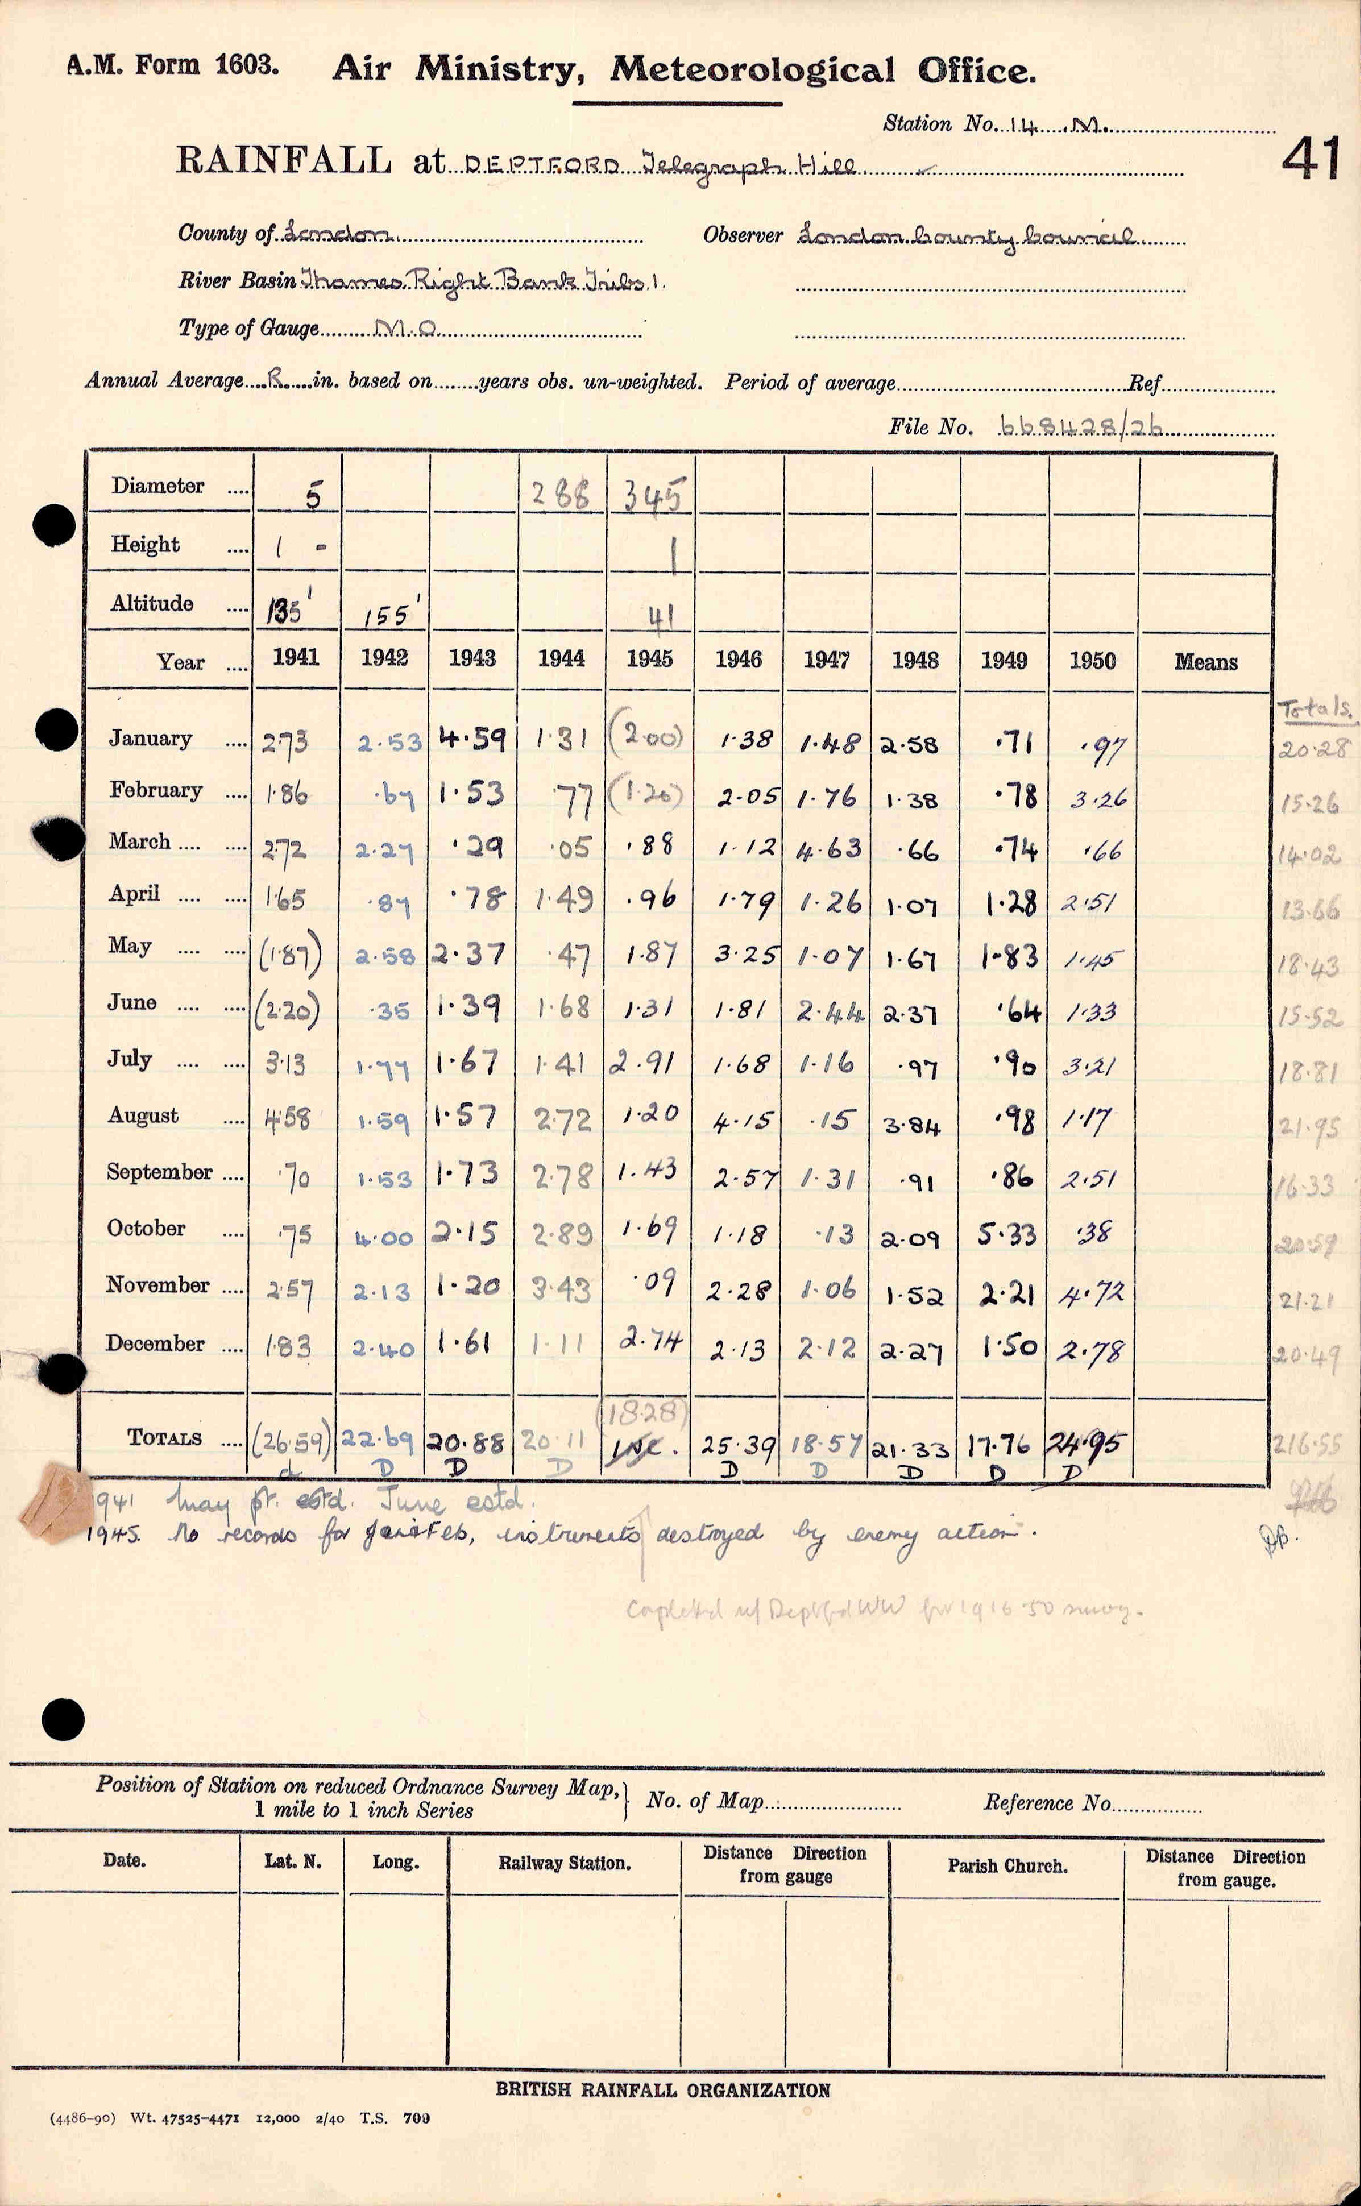 A.M. Form 1603. Air Ministry, Meteorological Office.
Station No. 14 M.
41
RAINFALL at DEPTFORD Telegraph Hill
County of London Observer London County Council
River Basin Thames Right Bank Tribs 1.
Type of Gauge M.O
Annual Average R in. based on years obs. un-weighted. Period of average Ref
File No. 668428/26
Diameter .... 5 288 345
Height .... 1 - 1
Altitude .... 135' 155' 41
Year .... 1941 1942 1943 1944 1945 1946 1947 1948 1949 1950 Means
Totals.
January .... 2.73 2.53 4.59 1.31 (2.00) 1.38 1.48 2.58 .71 .97 20.28
February .... 1.86 .67 1.53 .77 (1.20) 2.05 1.76 1.38 .78 3.26 15.26
March .... .... 2.72 2.27 .29 .05 .88 1.12 4.63 .66 .74 .66 14.02
April .... .... 1.65 .87 .78 1.49 .96 1.79 1.26 1.07 1.28 2.51 13.66
May .... .... (1.87) 2.58 2.37 .47 1.87 3.25 1.07 1.67 1.83 1.45 18.43
June .... .... (2.20) .35 1.39 1.68 1.31 1.81 2.44 2.37 .64 1.33 15.52
July .... .... 3.13 1.77 1.67 1.41 2.91 1.68 1.16 .97 .90 3.21 18.81
August .... 4.58 1.59 1.57 2.72 1.20 4.15 .15 3.84 .98 1.17 21.95
September .... .70 1.53 1.73 2.78 1.43 2.57 1.31 .91 .86 2.51 16.33
October .... .75 4.00 2.15 2.89 1.69 1.18 .13 2.09 5.33 .38 20.59
November .... 2.57 2.13 1.20 3.43 .09 2.28 1.06 1.52 2.21 4.72 21.21
December .... 1.83 2.40 1.61 1.11 2.74 2.13 2.12 2.27 1.50 2.78 20.49
(18.28)
TOTALS .... (26.59) 22.69 20.88 20.11 Inc. 25.39 18.57 21.33 17.76 24.95 216.55
d D D D D D D D D
941 May pt. estd. June estd.
1945. No records for Jan & Feb, instruments destroyed by enemy action.
Completed w/ Deptford WW for 1916-50 survey.
Position of Station on reduced Ordnance Survey Map, } No. of Map Reference No
1 mile to 1 inch Series
Date. Lat. N. Long. Railway Station. Distance Direction from gauge Parish Church. Distance Direction from gauge.
BRITISH RAINFALL ORGANIZATION
(4486-90) Wt. 47525-4471 12,000 2/40 T.S. 709